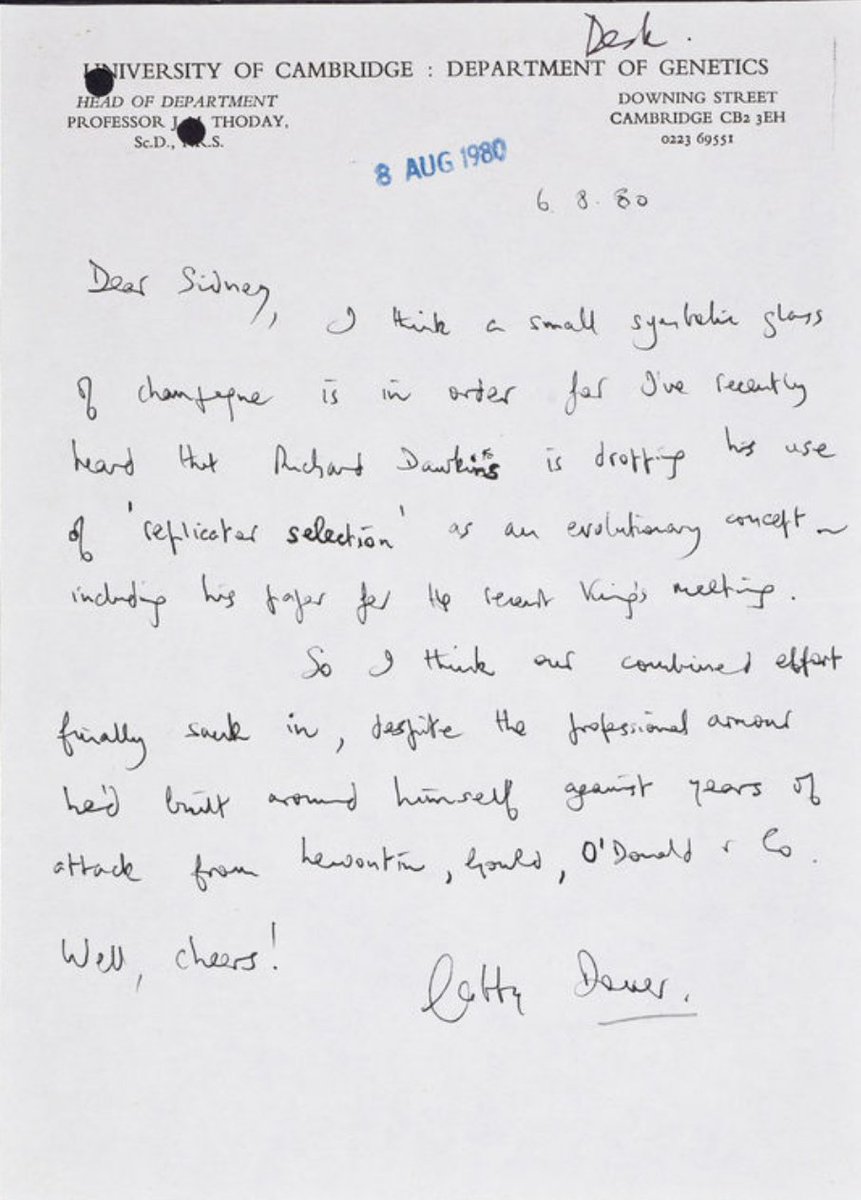 Desk.
UNIVERSITY OF CAMBRIDGE : DEPARTMENT OF GENETICS
HEAD OF DEPARTMENT
PROFESSOR J. THODAY,
Sc.D., F.R.S.
DOWNING STREET
CAMBRIDGE CB2 3EH
0223 69551
8 AUG 1980
6. 8. 80
Dear Sidney,
I think a small symbolic glass
of champagne is in order for I've recently
heard that Richard Dawkins is dropping his use
of 'replicator selection' as an evolutionary concept –
including his paper for the recent King's meeting.
So I think our combined effort
finally sank in, despite the professional armour
he'd built around himself against years of
attack from Lewontin, Gould, O'Donald & Co.
Well, cheers!
Gabby Dover.